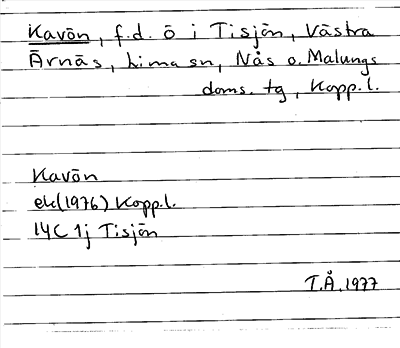 Kavön, f.d. ö i Tisjön, Västra
Ärnäs, Lima sn, Nås o. Malungs
doms. tg, Kopp.l.
Kavön
ek(1976) Kopp.l.
14C 1j Tisjön
T.Å.1977